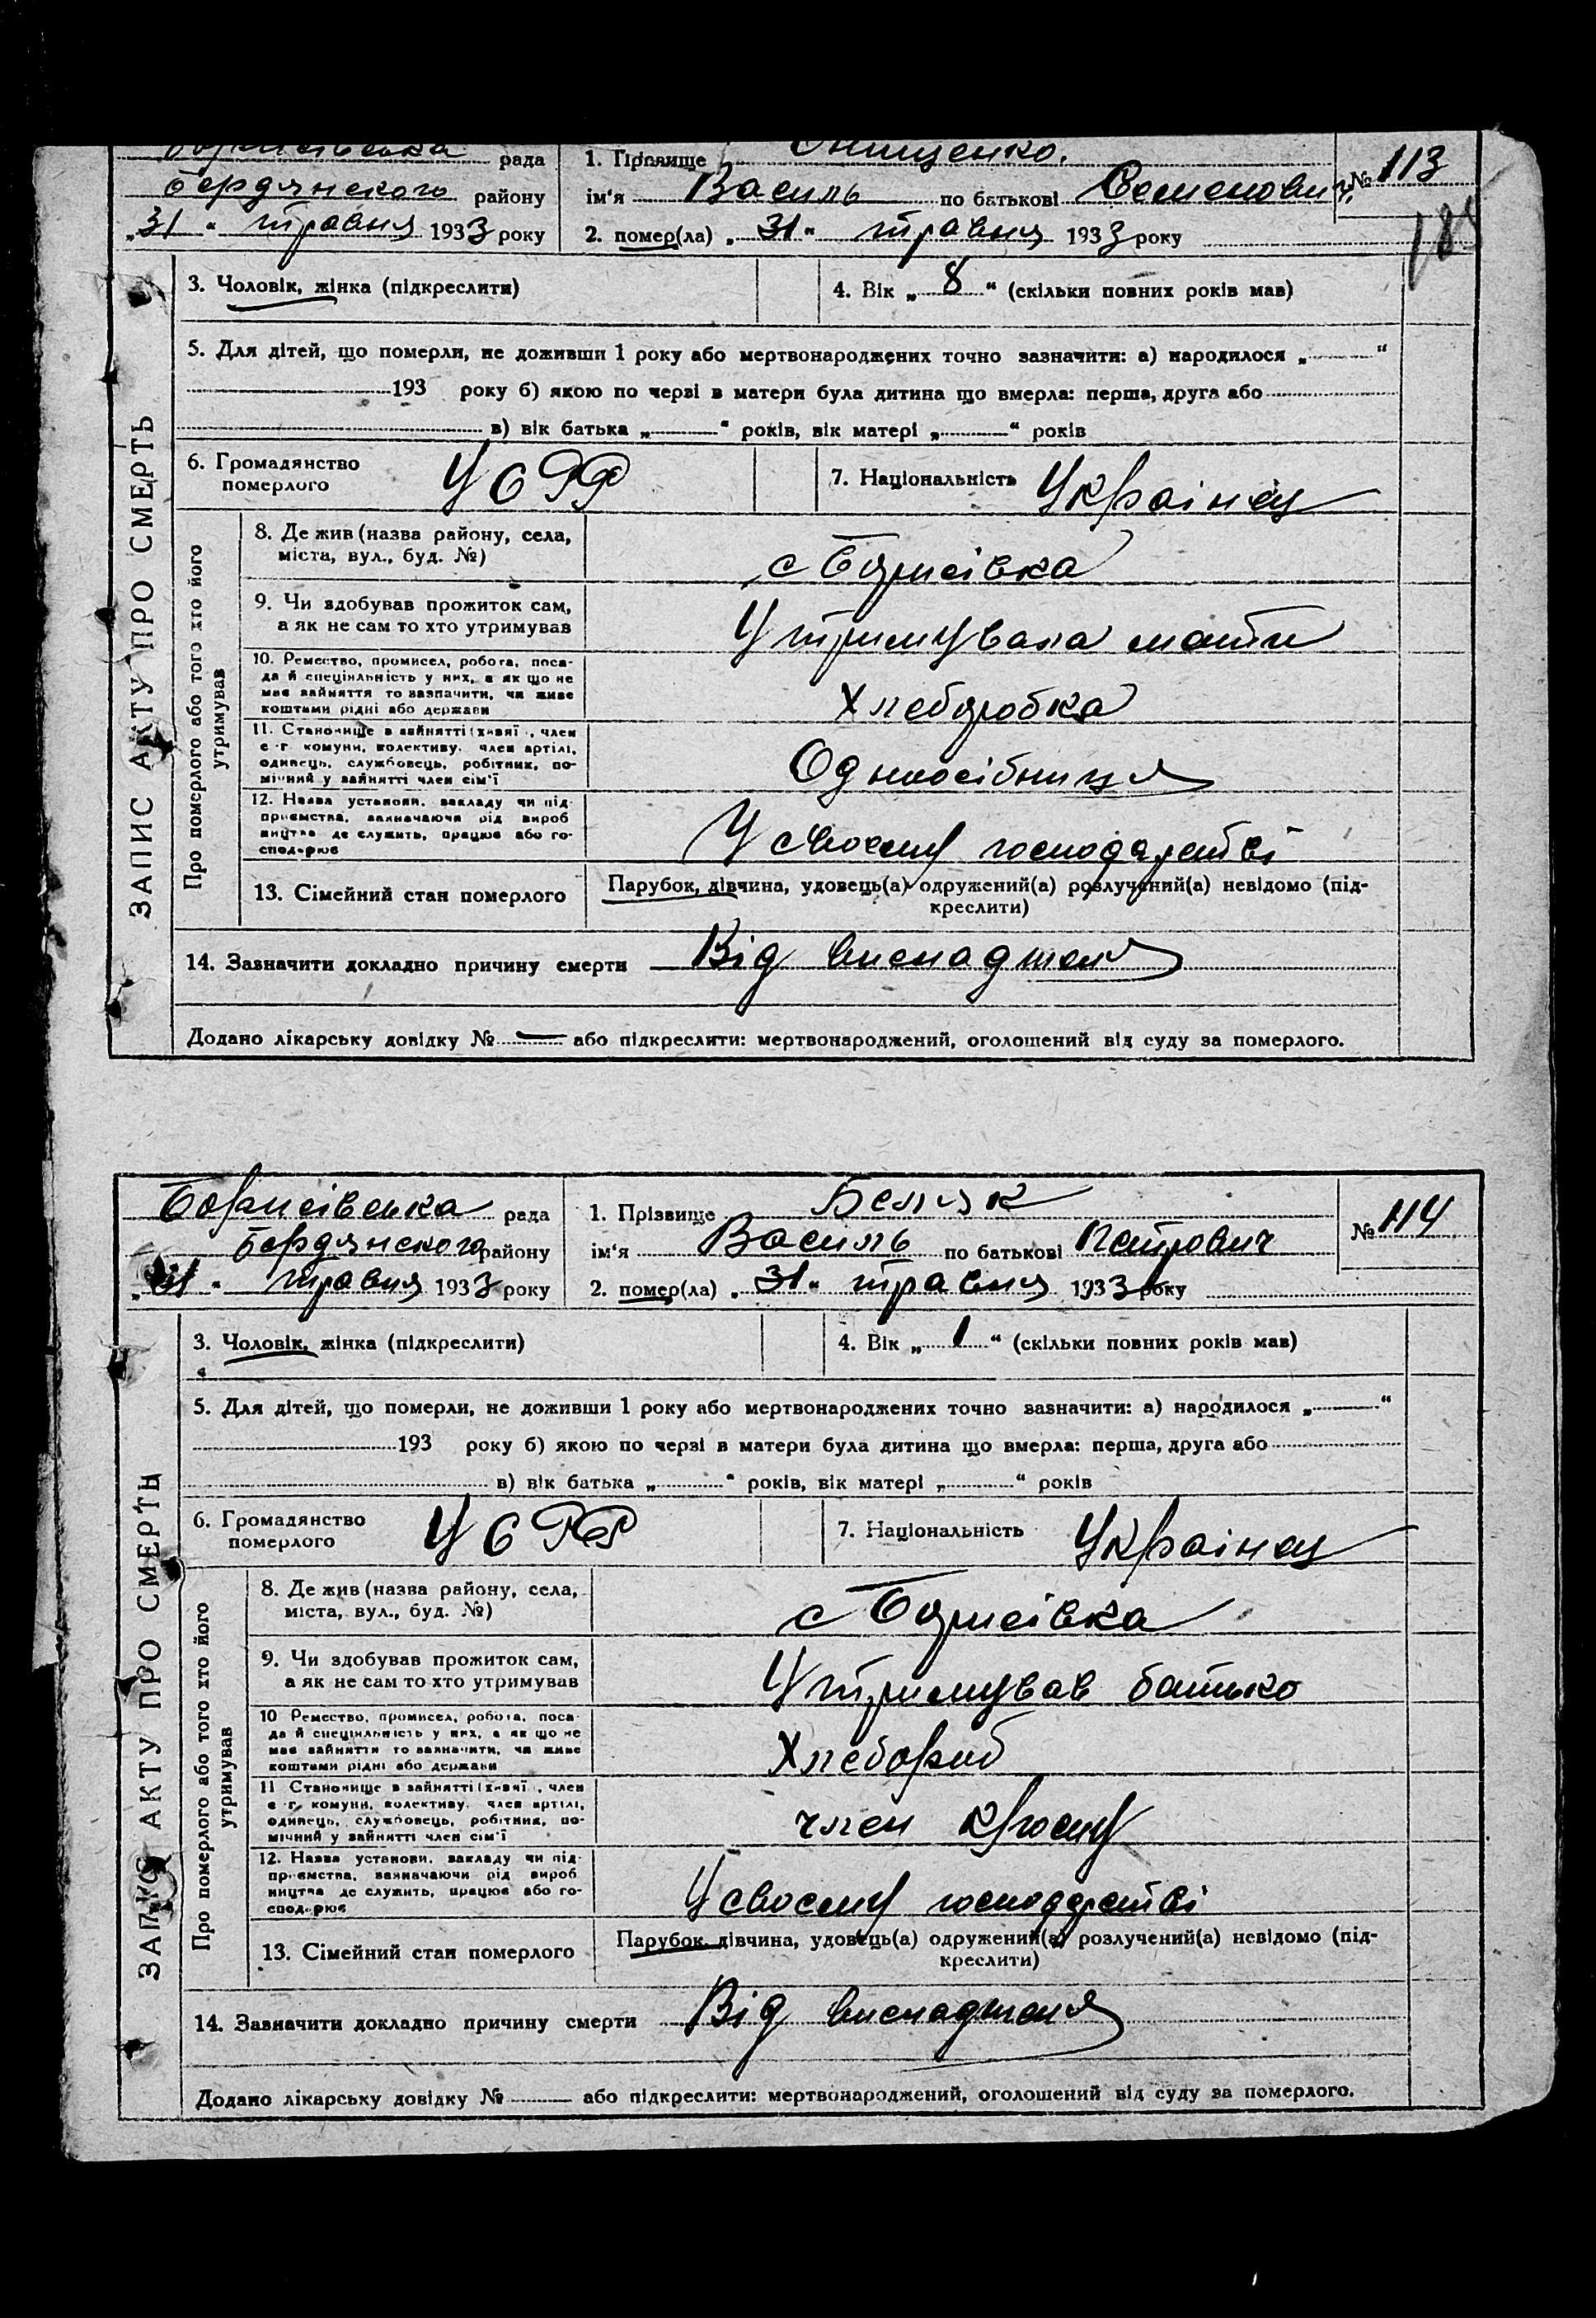 Борисівська рада 1. Прізвище Онищенко. № 113
Бердянского району ім'я Василь по батькові Семенович.
„31“ травня 1933 року 2. помер(ла) „31“ травня 1933 року
184
3. Чоловік, жінка (підкреслити) 4. Вік „8“ (скільки повних років мав)
5. Для дітей, що померли, не доживши 1 року або мертвонароджених точно зазначити: а) народилося „ “
193 року б) якою по черзі в матери була дитина що вмерла: перша, друга або
в) вік батька „ “ років, вік матері „ “ років
6. Громадянство померлого УСРР 7. Національність Украінец
ЗАПИС АКТУ ПРО СМЕРТЬ
Про померлого або того хто його утримував
8. Де жив (назва району, села,
міста, вул., буд. №)
с Борисівка
9. Чи здобував прожиток сам,
а як не сам то хто утримував
Утримувала мати
10. Ремество, промисел, робота, поса-
да й спеціяльність у них, а як що не
має зайняття то зазначити, чи живе
коштами рідні або держави
Хлеборобка
11. Становище в зайнятті (хазяї, член
с-г комуни, колективу, член артілі,
одинець, службовець, робітник, по-
мічний у зайнятті член сім'ї
Одноосібниця
12. Назва установи, закладу чи під-
приємства, зазначаючи рід вироб
ництва де служить, працює або го-
сподарює
У своему господарстві
13. Сімейний стан померлого Парубок, дівчина, удовець(а) одружений(а) розлучений(а) невідомо (під-
креслити)
14. Зазначити докладно причину смерти Від виснадженя
Додано лікарську довідку № — або підкреслити: мертвонароджений, оголошений від суду за померлого.
Борисівська рада 1. Прізвище Беляк № 114
Бердянского району ім'я Василь по батькові Петрович
„31“ травня 1933 року 2. помер(ла) „31“ травня 1933 року
3. Чоловік, жінка (підкреслити) 4. Вік „1“ (скільки повних років мав)
5. Для дітей, що померли, не доживши 1 року або мертвонароджених точно зазначити: а) народилося „ “
193 року б) якою по черзі в матери була дитина що вмерла: перша, друга або
в) вік батька „ “ років, вік матері „ “ років
6. Громадянство померлого УСРР 7. Національність Украінец
ЗАПИС АКТУ ПРО СМЕРТЬ
Про померлого або того хто його утримував
8. Де жив (назва району, села,
міста, вул., буд. №)
с Борисівка
9. Чи здобував прожиток сам,
а як не сам то хто утримував
Утримував батько
10 Ремество, промисел, робота, поса-
да й спеціяльність у них, а як що не
має зайняття то зазначити, чи живе
коштами рідні або держави
Хлебороб
11 Становище в зайнятті (хазяї, член
с-г. комуни, колективу, член артілі,
одинець, службовець, робітник, по-
мічний у зайнятті член сім'ї
член
12. Назва установи, закладу чи під-
приємства, зазначаючи рід вироб
ництва де служить, працює або го-
сподарює
У своему господарстві
13. Сімейний стан померлого Парубок, дівчина, удовець(а) одружений(а) розлучений(а) невідомо (під-
креслити)
14. Зазначити докладно причину смерти Від виснадженя
Додано лікарську довідку № або підкреслити: мертвонароджений, оголошений від суду за померлого.